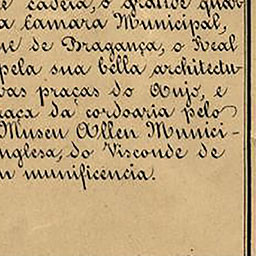 e cadeia, o grande quar
a Camara Municipal,
ue de Bragança, o Real
pela sua bella architectu-
vas praças do Anjo, e
raça da cordoaria pelo
Museu Allen Munici-
nglesa, do Visconde de
n munificencia.